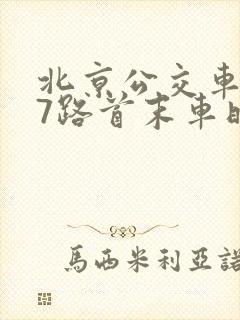 北京公交車
7路首末車
馬西米利亞諾